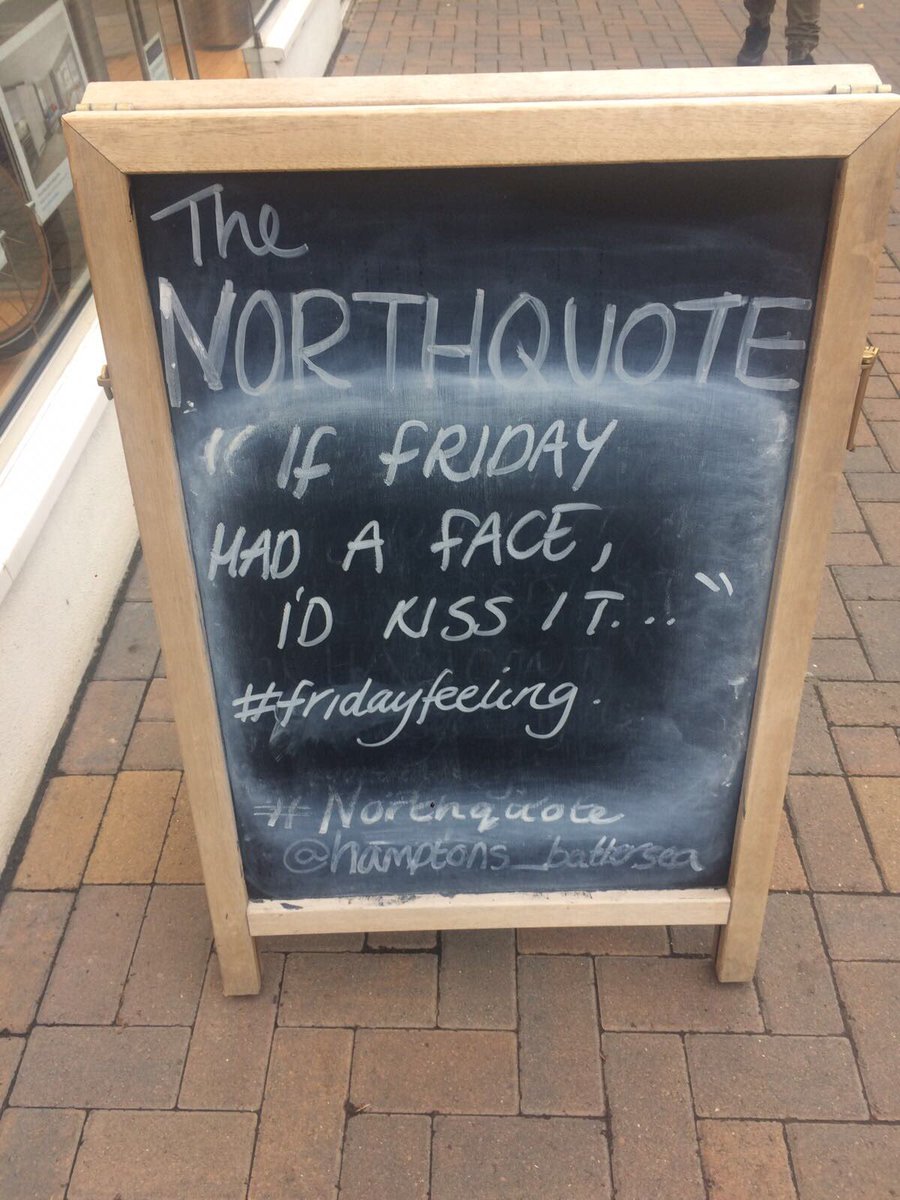 The
NORTHQUOTE
"If FRIDAY
HAD A FACE,
I'D KISS IT..."
#fridayfeeling.
#Northquote
@hamptons_battersea